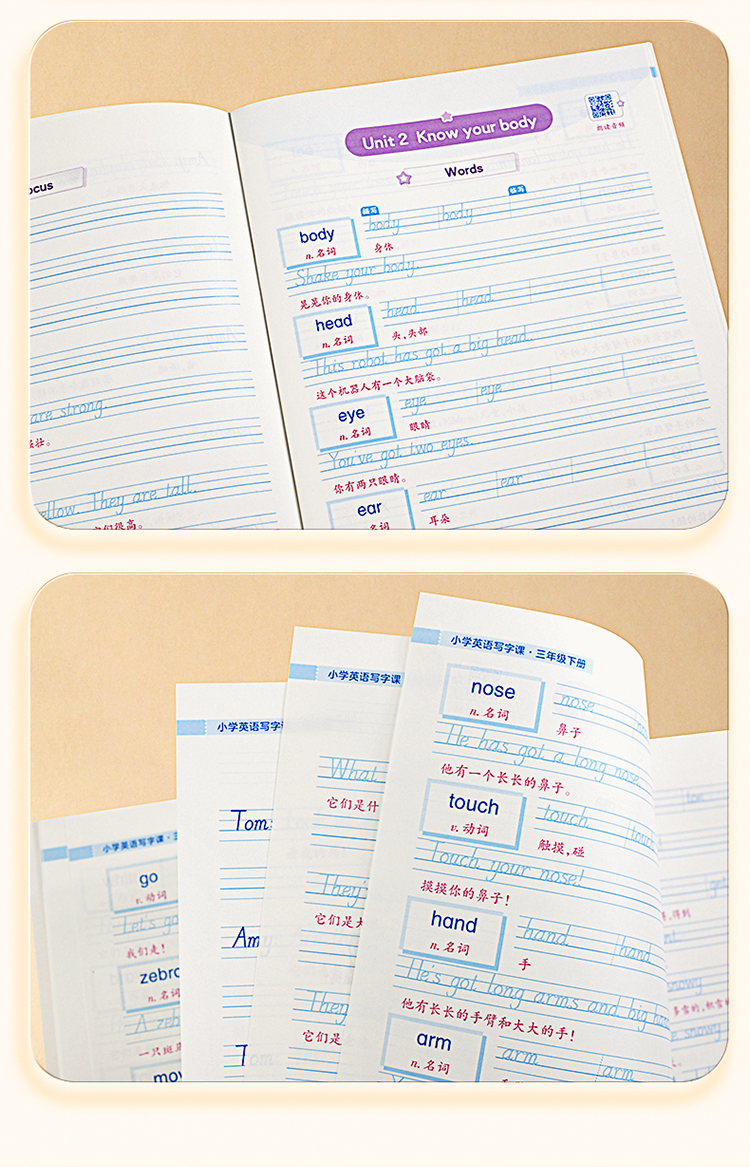 ocus
are strong.
ellow. They are tall.
们很高。
Unit 2 Know your body
朗读音频
Words
描写
临写
body
n. 名词
body body
身体
Shake your body.
晃晃你的身体。
head
n. 名词
head head
头,头部
This robot has got a big head.
这个机器人有一个大脑袋。
eye
n. 名词
eye eye
眼睛
You've got two eyes.
你有两只眼睛。
ear
名词
ear ear
耳朵
小学英语写字课·三
go
v. 动词
Let's go
我们走!
zebra
n. 名词
A zeb
一只斑
mov
小学英语写字
Tom
Am
T
小学英语写字课
What
它们是什
They'
它们是大
They
它们是
小学英语写字课·三年级下册
nose
n. 名词
nose
鼻子
He has got a long nose.
他有一个长长的鼻子。
touch
v. 动词
touch touch
触摸,碰
Touch your nose!
摸摸你的鼻子!
hand
n. 名词
hand hand
手
He's got long arms and big han
他有长长的手臂和大大的手!
arm
n. 名词
arm arm
得到
snowy
多雪的,积雪的
snowy